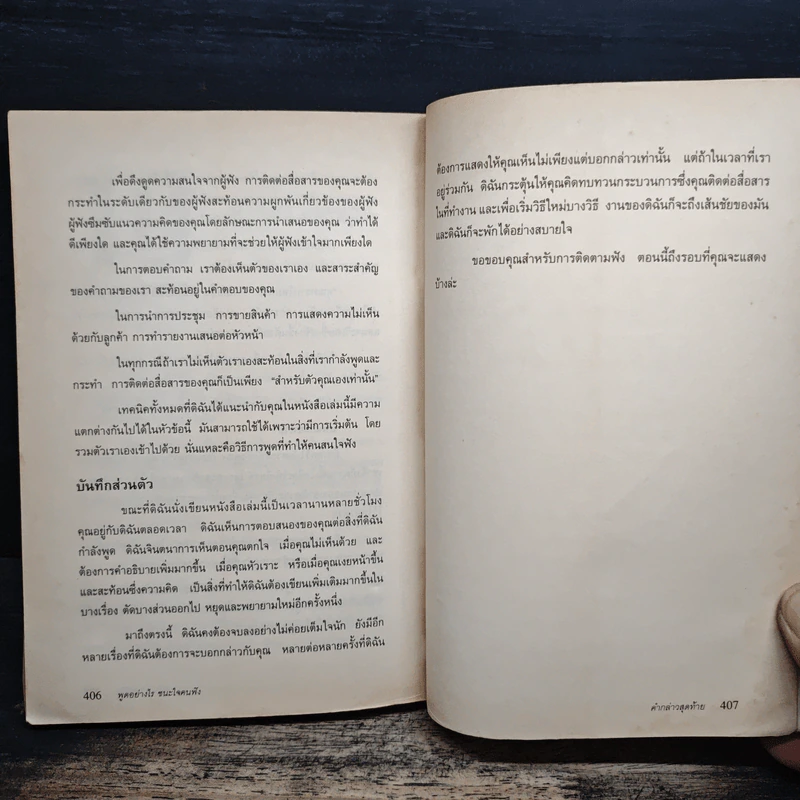 เพื่อดึงดูดความสนใจจากผู้ฟัง การติดต่อสื่อสารของคุณจะต้อง
กระทำในระดับเดียวกับของผู้ฟังสะท้อนความผูกพันเกี่ยวข้องของผู้ฟัง
ผู้ฟังซึมซับแนวความคิดของคุณโดยลักษณะการนำเสนอของคุณ ว่าทำได้
ดีเพียงใด และคุณได้ใช้ความพยายามที่จะช่วยให้ผู้ฟังเข้าใจมากเพียงใด
ในการตอบคำถาม เราต้องเห็นตัวของเราเอง และสาระสำคัญ
ของคำถามของเรา สะท้อนอยู่ในคำตอบของคุณ
ในการนำการประชุม การขายสินค้า การแสดงความไม่เห็น
ด้วยกับลูกค้า การทำรายงานเสนอต่อหัวหน้า
ในทุกกรณีถ้าเราไม่เห็นตัวเราเองสะท้อนในสิ่งที่เรากำลังพูดและ
กระทำ การติดต่อสื่อสารของคุณก็เป็นเพียง “สำหรับตัวคุณเองเท่านั้น”
เทคนิคทั้งหมดที่ดิฉันได้แนะนำกับคุณในหนังสือเล่มนี้มีความ
แตกต่างกันไปได้ในหัวข้อนี้ มันสามารถใช้ได้เพราะว่ามีการเริ่มต้น โดย
รวมตัวเราเองเข้าไปด้วย นั่นแหละคือวิธีการพูดที่ทำให้คนสนใจฟัง
บันทึกส่วนตัว
ขณะที่ดิฉันนั่งเขียนหนังสือเล่มนี้เป็นเวลานานหลายชั่วโมง
คุณอยู่กับดิฉันตลอดเวลา ดิฉันเห็นการตอบสนองของคุณต่อสิ่งที่ดิฉัน
กำลังพูด ดิฉันจินตนาการเห็นตอนคุณตกใจ เมื่อคุณไม่เห็นด้วย และ
ต้องการคำอธิบายเพิ่มมากขึ้น เมื่อคุณหัวเราะ หรือเมื่อคุณเงยหน้าขึ้น
และสะท้อนซึ่งความคิด เป็นสิ่งที่ทำให้ดิฉันต้องเขียนเพิ่มเติมมากขึ้นใน
บางเรื่อง ตัดบางส่วนออกไป หยุดและพยายามใหม่อีกครั้งหนึ่ง
มาถึงตรงนี้ ดิฉันคงต้องจบลงอย่างไม่ค่อยเต็มใจนัก ยังมีอีก
หลายเรื่องที่ดิฉันต้องการจะบอกกล่าวกับคุณ หลายต่อหลายครั้งที่ดิฉัน
406 พูดอย่างไร ชนะใจคนฟัง
ต้องการแสดงให้คุณเห็นไม่เพียงแต่บอกกล่าวเท่านั้น แต่ถ้าในเวลาที่เรา
อยู่ร่วมกัน ดิฉันกระตุ้นให้คุณคิดทบทวนกระบวนการซึ่งคุณติดต่อสื่อสาร
ในที่ทำงาน และเพื่อเริ่มวิธีใหม่บางวิธี งานของดิฉันก็จะถึงเส้นชัยของมัน
และดิฉันก็จะพักได้อย่างสบายใจ
ขอขอบคุณสำหรับการติดตามฟัง ตอนนี้ถึงรอบที่คุณจะแสดง
บ้างล่ะ
คำกล่าวสุดท้าย 407